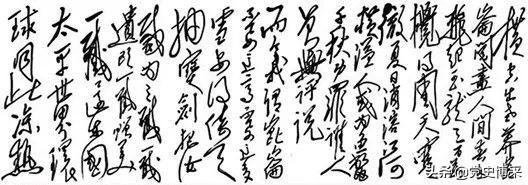 横空出世莽崑
崙阅尽人间春色
飞起玉龙三百万
搅得周天寒
彻夏日消溶江河
横溢人或为鱼鳖
千秋功罪谁人
曾与评说
而今我谓崑崙
不要这高不要这多
雪安得倚天
抽宝剑把汝
裁为三截一截
遗欧一截赠美
一截还东国
太平世界环
球同此凉热
头条@党史博采